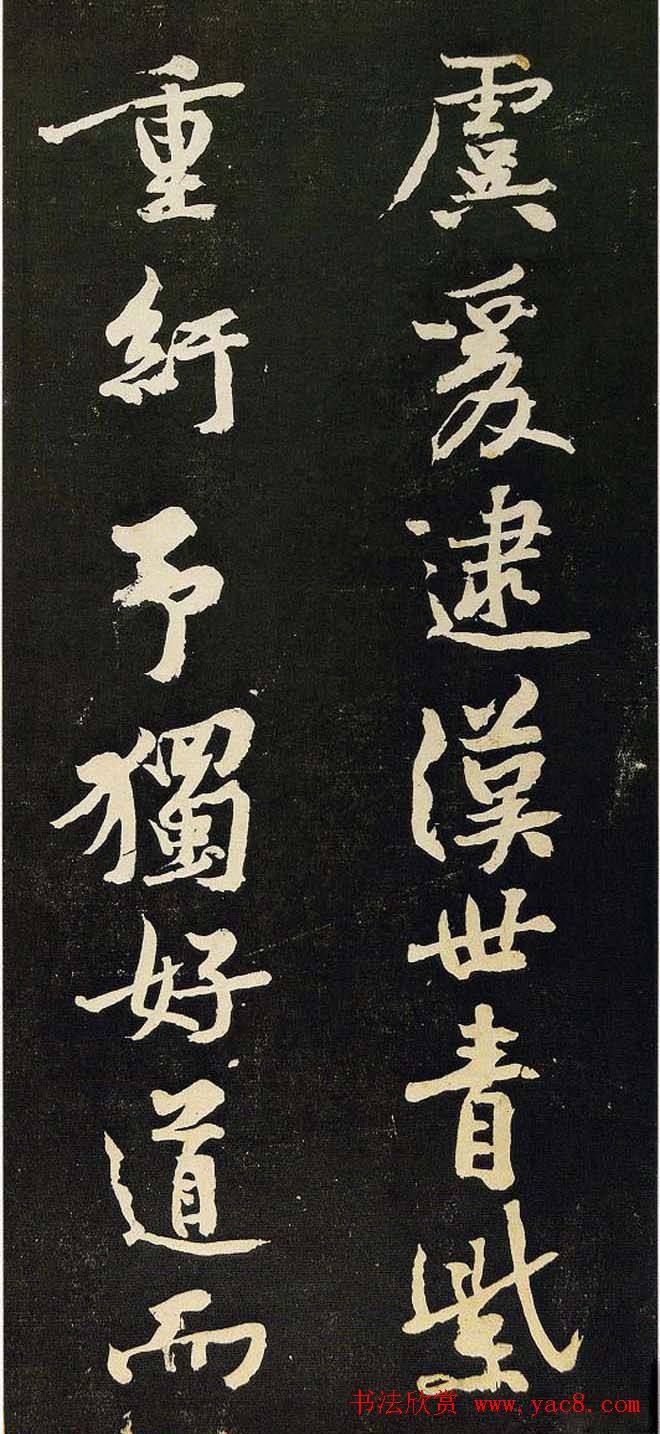 虞爰逮漢世青紫
重紆予獨好道而
书法欣赏 www.yac8.com